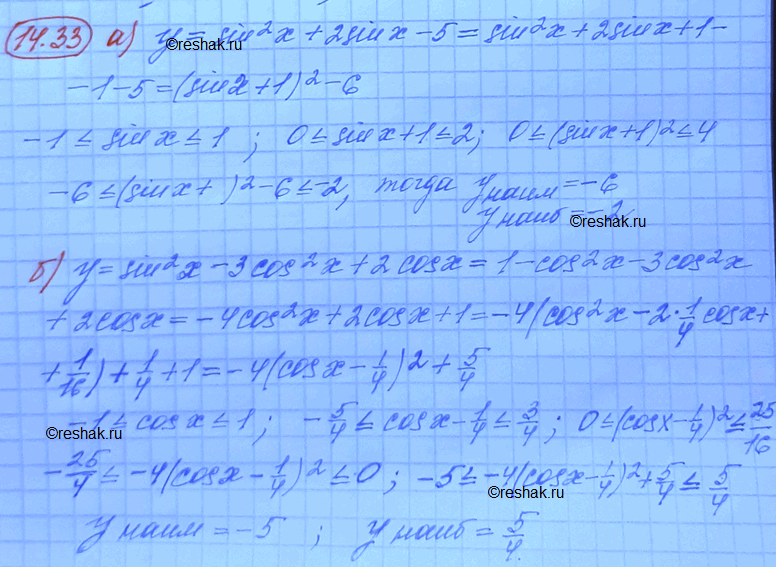 14.33 а) y = sin²x + 2sinx - 5 = sin²x + 2sinx + 1 -
©reshak.ru
- 1 - 5 = (sinx + 1)² - 6
-1 ≤ sinx ≤ 1 ; 0 ≤ sinx + 1 ≤ 2 ; 0 ≤ (sinx + 1)² ≤ 4
-6 ≤ (sinx + )² - 6 ≤ -2, тогда y наим = -6
y наиб = -2
©reshak.ru
б) y = sin²x - 3cos²x + 2cosx = 1 - cos²x - 3cos²x
©reshak.ru
+ 2cosx = -4cos²x + 2cosx + 1 = -4(cos²x - 2·1/4 cosx +
+ 1/16) + 1/4 + 1 = -4(cosx - 1/4)² + 5/4
-1 ≤ cosx ≤ 1 ; -5/4 ≤ cosx - 1/4 ≤ 3/4 ; 0 ≤ (cosx - 1/4)² ≤ 25/16
©reshak.ru
-25/4 ≤ -4(cosx - 1/4)² ≤ 0 ; -5 ≤ -4(cosx - 1/4)² + 5/4 ≤ 5/4
©reshak.ru
y наим = -5 ; y наиб = 5/4